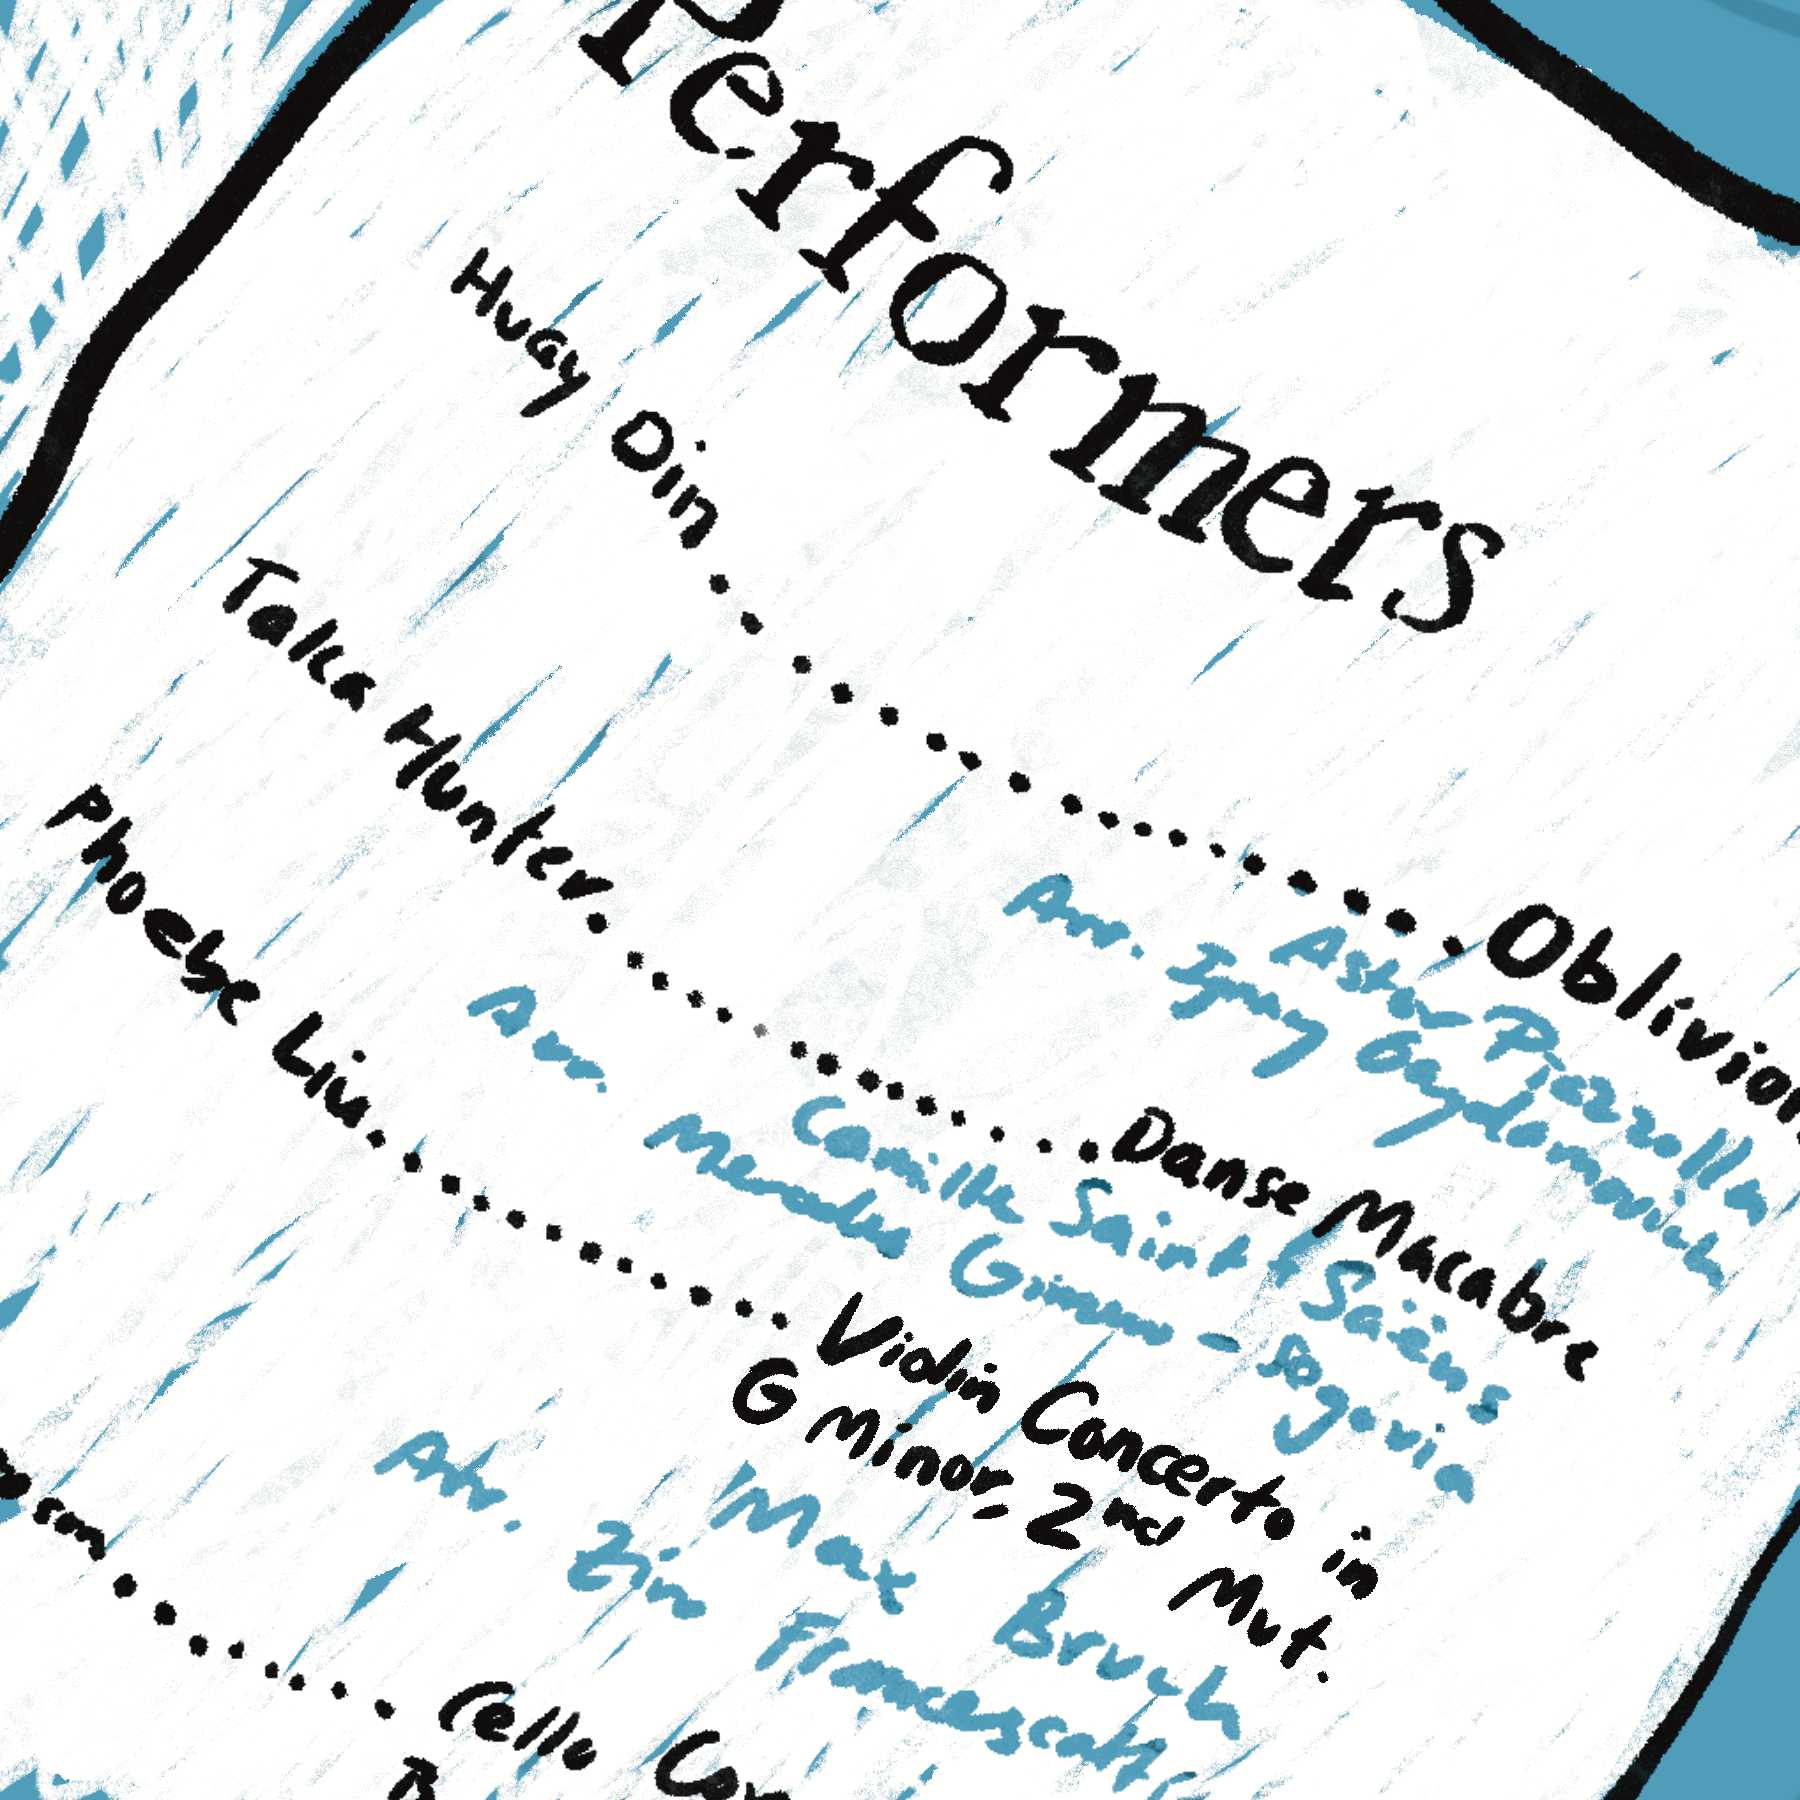 Performers
Huay Din .......................... Oblivion
Astor Piazzolla
Arr. Ignay Gaydamovich
Taka Hunter .................. Danse Macabre
Camille Saint-Saëns
Arr. Mercedes Gimeno-Segovia
Phoebe Liu ............. Violin Concerto in
G Minor, 2nd Mvt.
Max Bruch
Arr. Zino Francescatti
osm ........ Cello Con